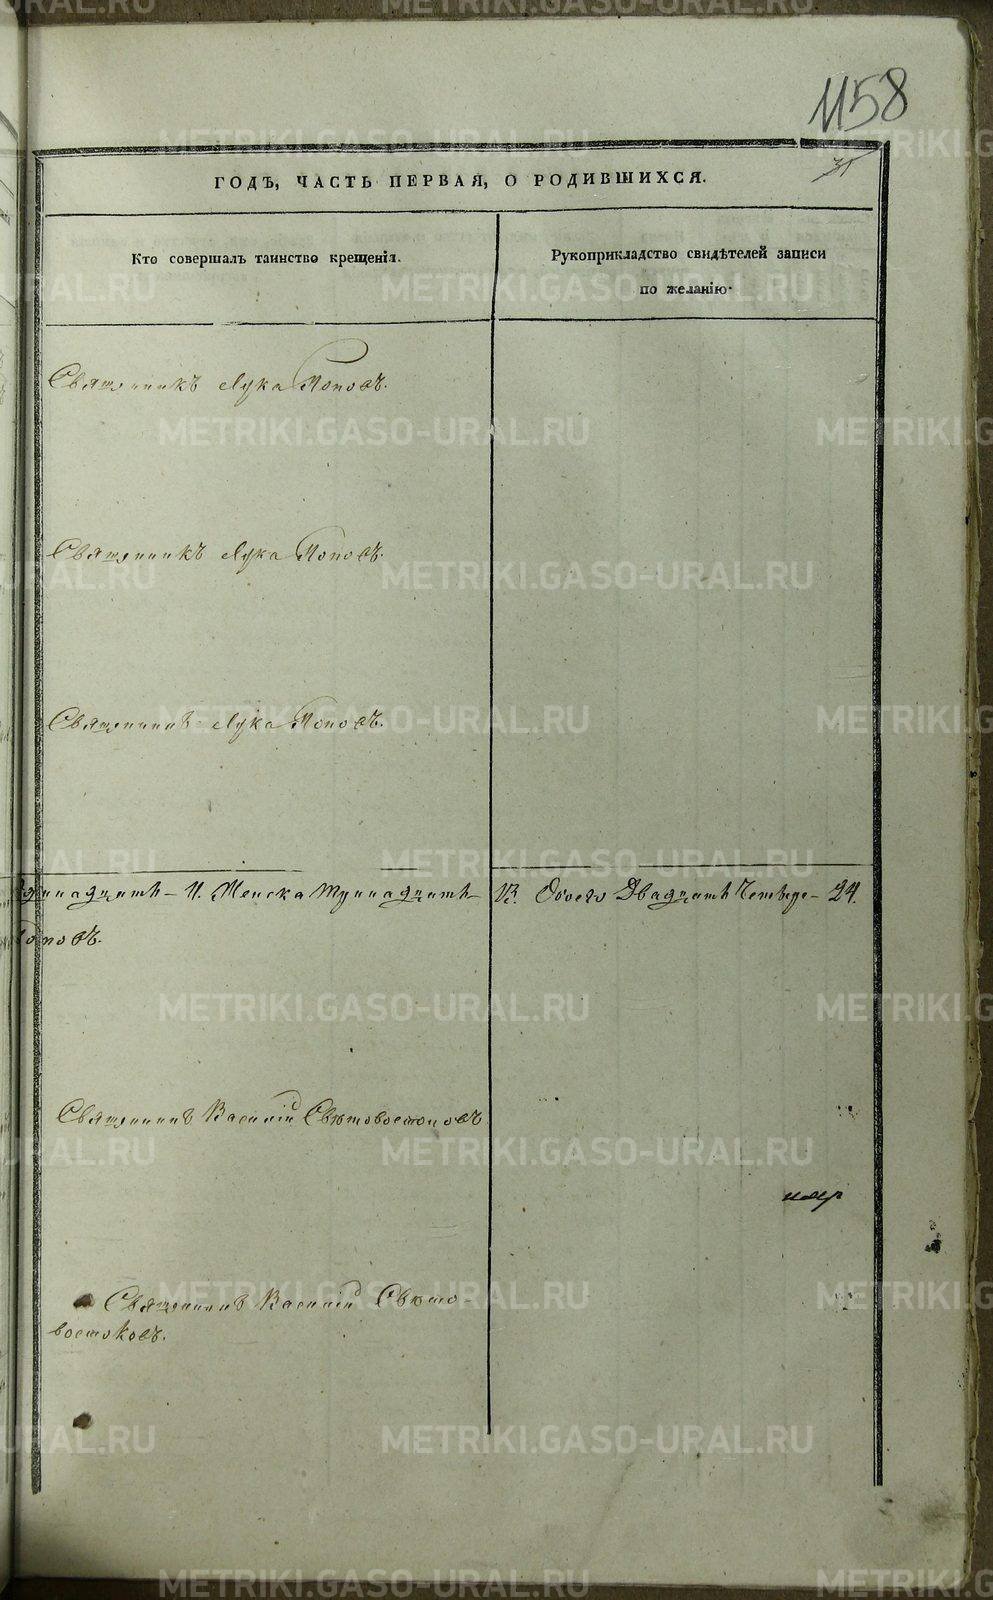 1158
31
ГОДЪ, ЧАСТЬ ПЕРВАЯ, О РОДИВШИХСЯ.
Кто совершалъ таинство крещенія.
Рукоприкладство свидѣтелей записи
по желанію.
Священникъ Лука Поповъ.
Священникъ Лука Поповъ.
Священникъ Лука Поповъ.
динадцать – 11. Женска Тринадцать – 13. Обоего Двадцать Четыре – 24.
Поповъ.
Священникъ Василій Свѣтовостоковъ
Священникъ Василій Свѣто-
востоковъ.
METRIKI.GASO-URAL.RU